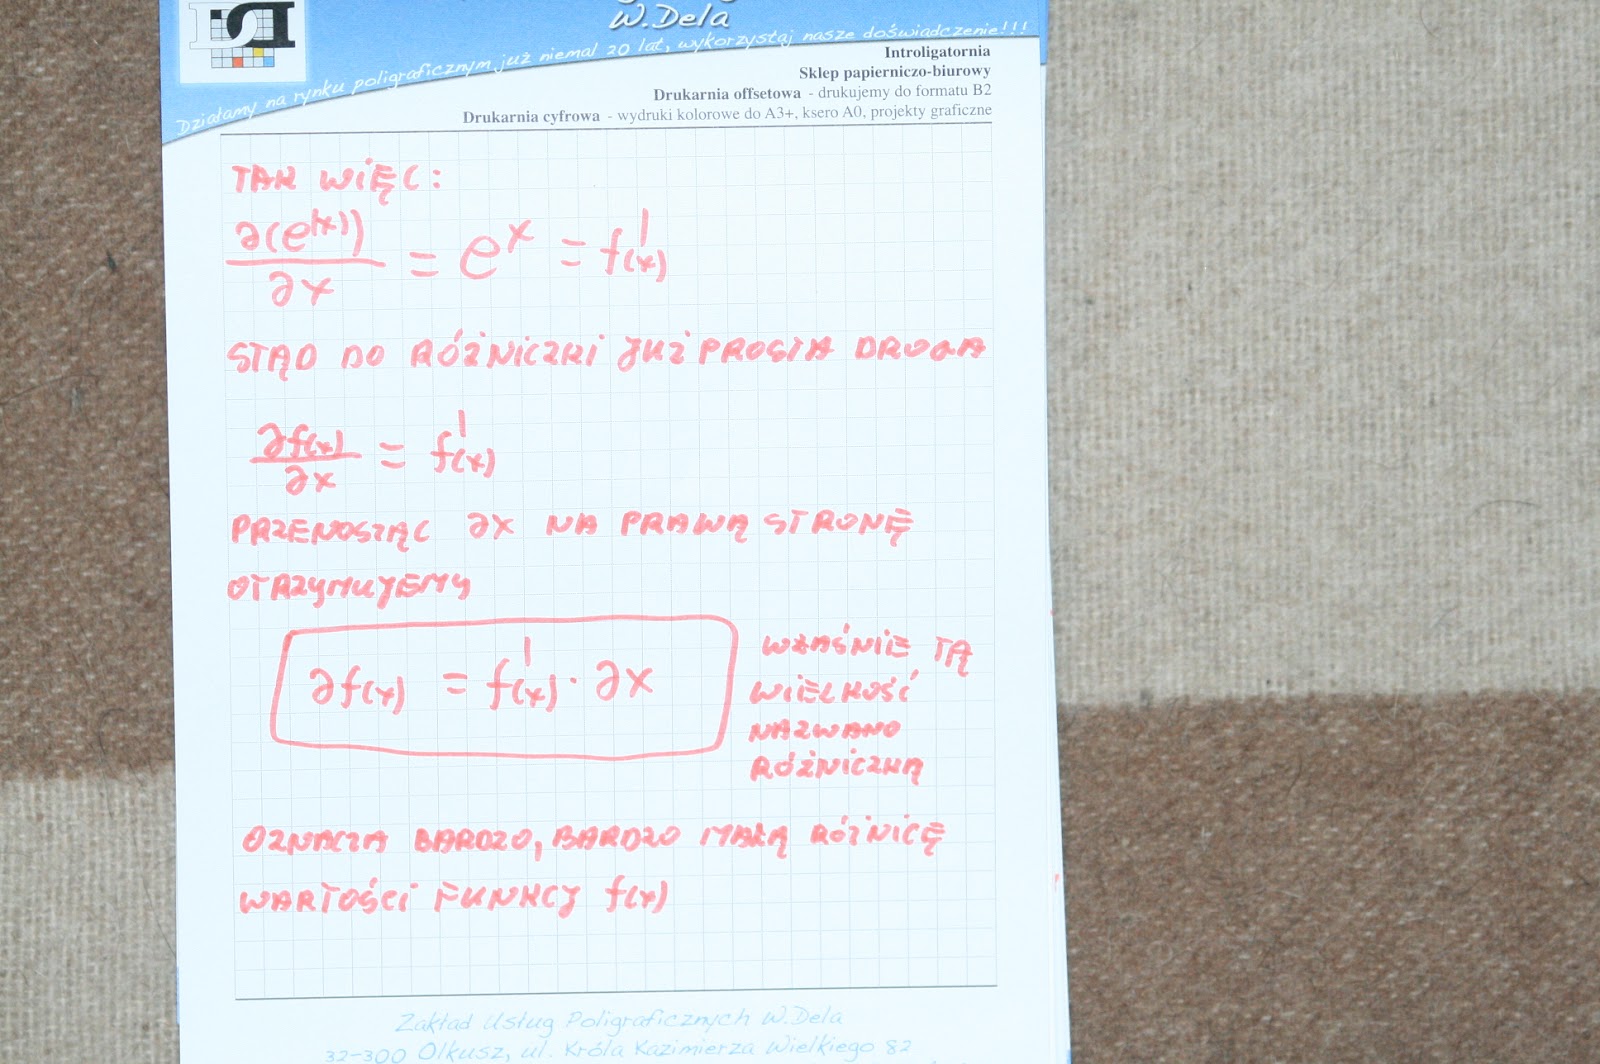 W.Dela
Działamy na rynku poligraficznym już niemal 20 lat, wykorzystaj nasze doświadczenie!!!
Introligatornia
Sklep papierniczo-biurowy
Drukarnia offsetowa - drukujemy do formatu B2
Drukarnia cyfrowa - wydruki kolorowe do A3+, ksero A0, projekty graficzne
TAK WIĘC:
∂(e^(x))/∂x = e^x = f'(x)
STĄD DO RÓŻNICZKI JUŻ PROSTA DROGA
∂f(x)/∂x = f'(x)
PRZENOSZĄC ∂x NA PRAWĄ STRONĘ
OTRZYMUJEMY
∂f(x) = f'(x) · ∂x
WŁAŚNIE TĄ
WIELKOŚĆ
NAZWANO
RÓŻNICZKĄ
OZNACZA BARDZO, BARDZO MAŁĄ RÓŻNICĘ
WARTOŚCI FUNKCJ f(x)
Zakład Usług Poligraficznych W.Dela
32-300 Olkusz, ul. Króla Kazimierza Wielkiego 82